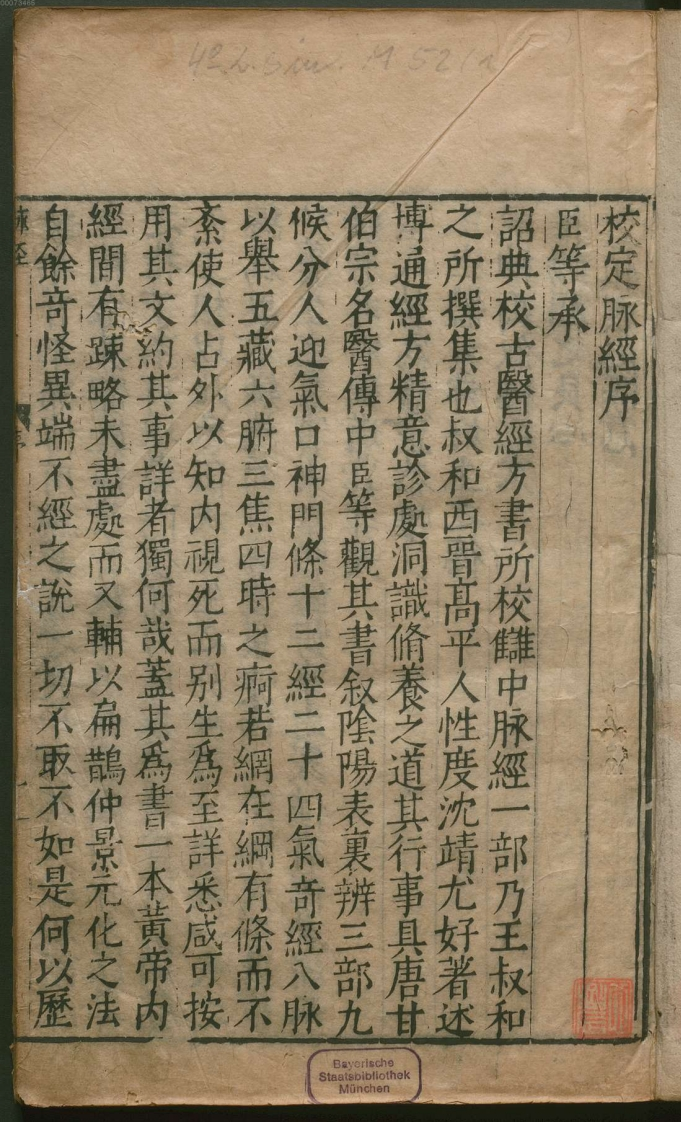 00073466
校定脉經序
臣等承
詔典校古醫經方書所校讎中脉經一部乃王叔和
之所撰集也叔和西晉髙平人性度沈靖尤好著述
博通經方精意診處洞識脩養之道其行事具唐甘
伯宗名醫傳中臣等觀其書叙陰陽表裏辨三部九
候分人迎氣口神門條十二經二十四氣奇經八脉
以舉五藏六腑三焦四時之痾若網在綱有條而不
紊使人占外以知内視死而别生爲至詳悉咸可按
用其文約其事詳者獨何哉蓋其爲書一本黄帝内
經間有踈略未盡處而又輔以扁鵲仲景元化之法
自餘竒怪異端不經之說一切不取不如是何以歷
脉經
Bayerische
Staatsbibliothek
München